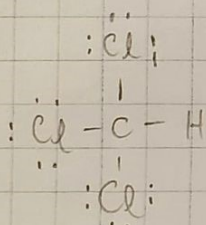 :Cl:
|
:Cl - C - H
|
:Cl: